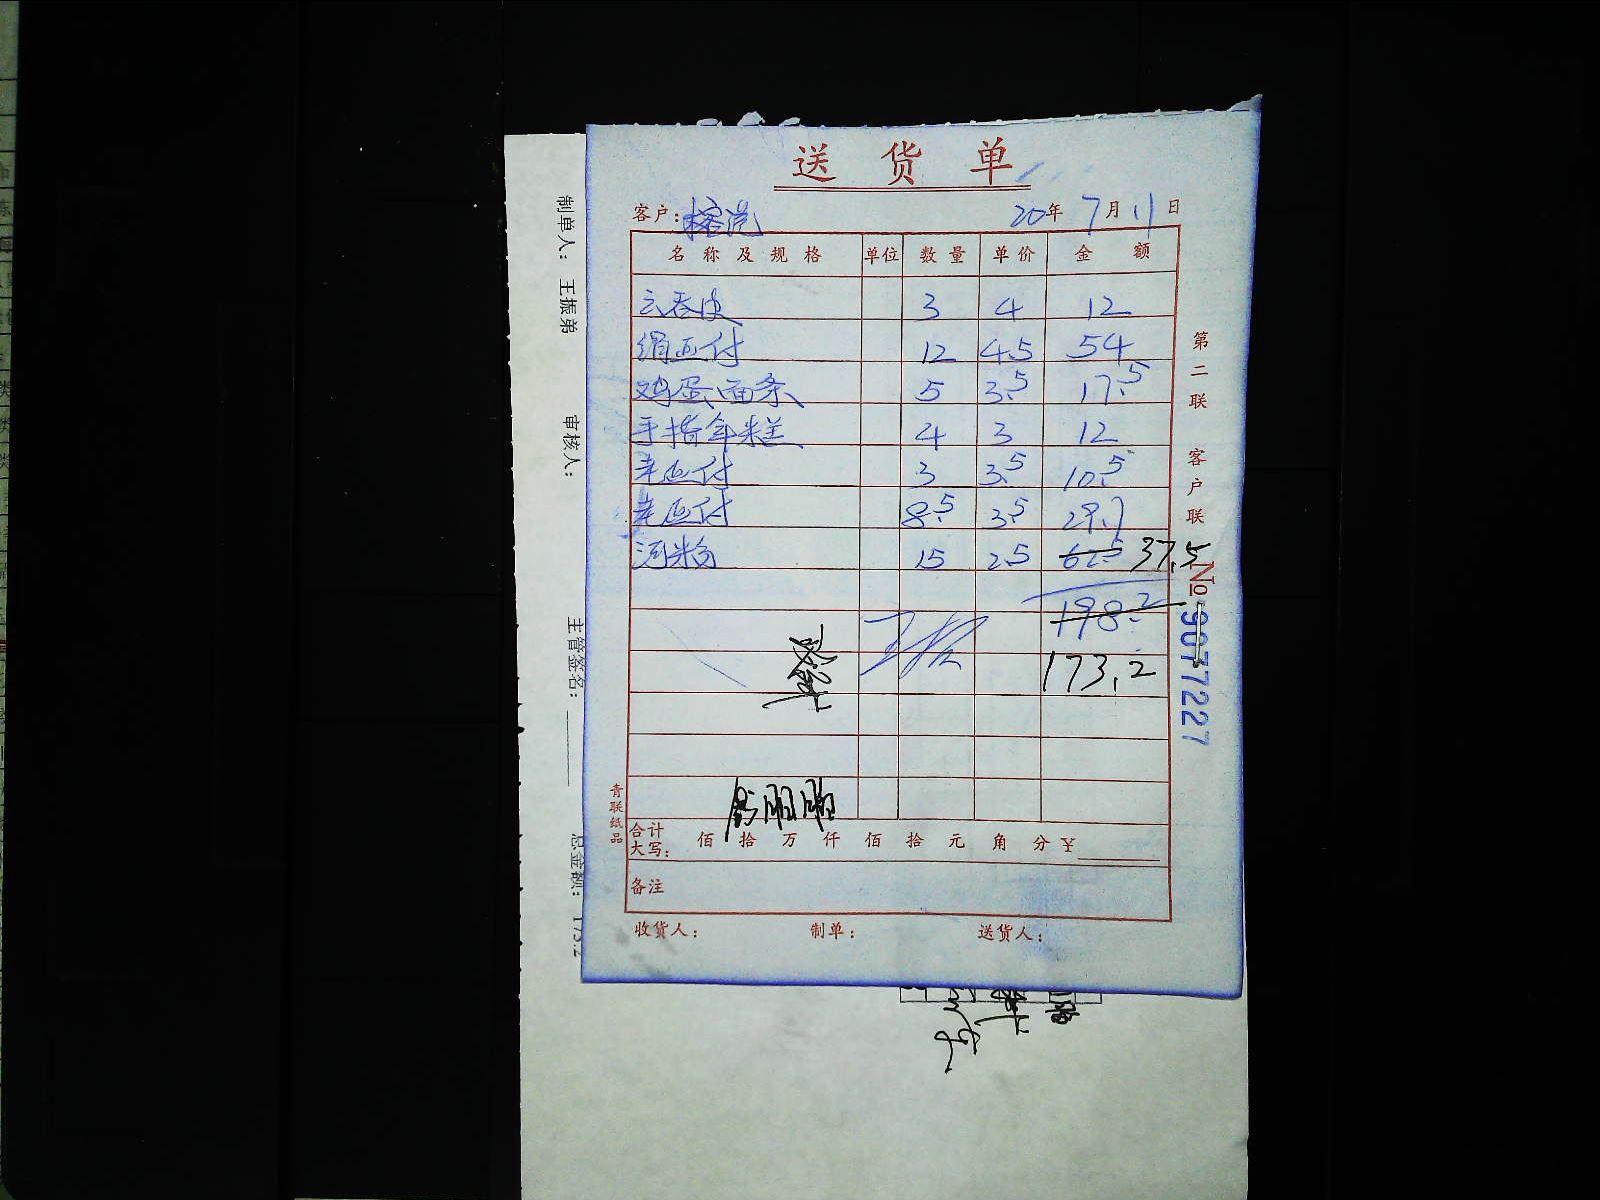 送 货 单
客户: 榕洸 20年 7月 11日
名 称 及 规 格 单位 数 量 单 价 金 额
云吞皮 3 4 12
绢豆付 12 4.5 54
鸡蛋面条 5 3.5 17.5
手指年糕 4 3 12
羊豆付 3 3.5 10.5
羊豆付 8.5 3.5 29.7
河粉 15 2.5 62.5 37.5
198.2
173.2
合计
大写: 佰 拾 万 仟 佰 拾 元 角 分 ¥
备注
收货人: 制单: 送货人:
第二联 客户联
№ 9077227
青联纸品
制单人: 王振弟 审核人: 主管签名: 总金额: 173.2